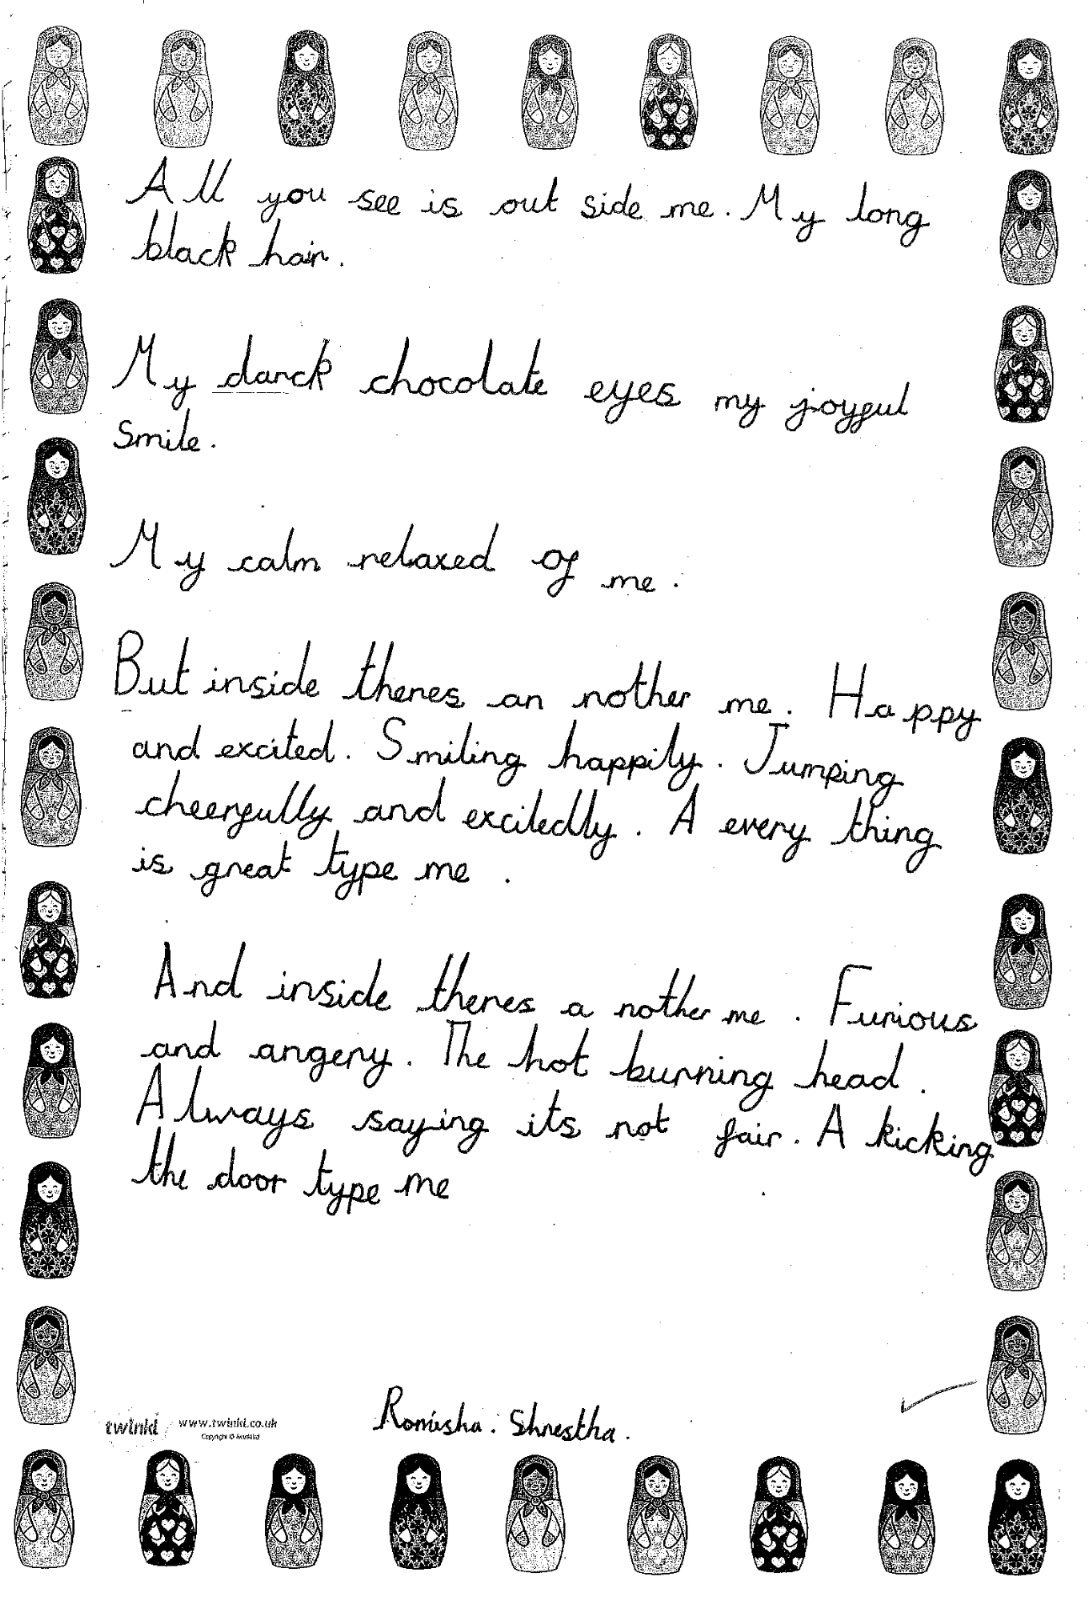 All you see is out side me. My long
black hair.
My darck chocolate eyes my joyful
smile.
My calm relaxed of me.
But inside theres an nother me. Happy
and excited. Smiling happily. Jumping
cheerfully and exciledlly. A every thing
is great type me.
And inside theres a nother me. Furious
and angery. The hot burning head.
Always saying its not fair. A kicking
the door type me
Romisha. Shrestha.
twinkl www.twinkl.co.uk